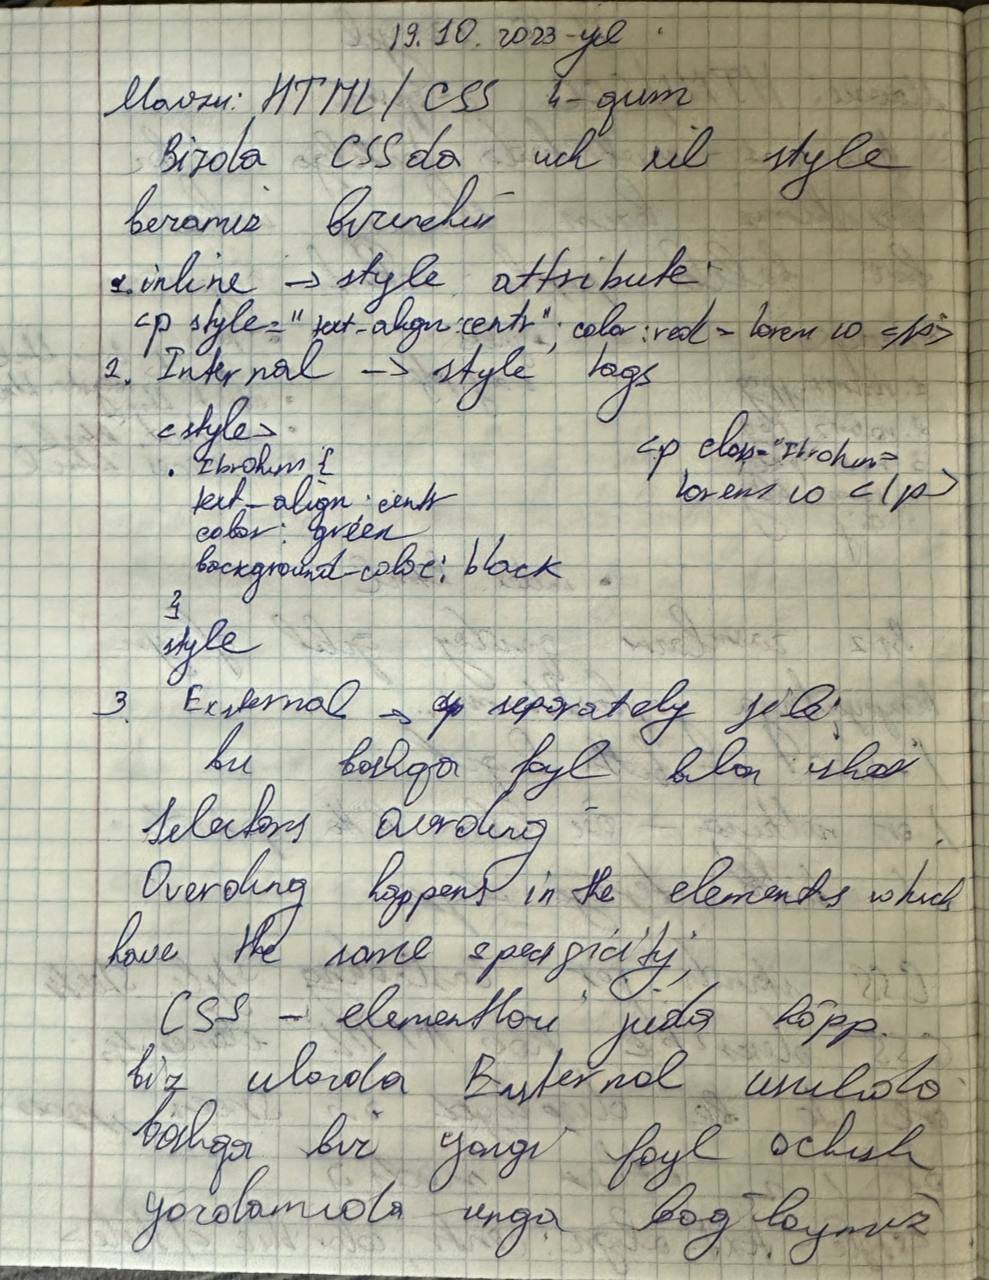 19.10.2023-yil
Mavzu: HTML/CSS 4-qism
Bizda CSSda uch xil style
beramiz birinchisi
1.inline → style attribute
<p style="text-align:centr"; color:red> lorem 10 </p>
2. Internal → style tags
<style>
. Ibrohim {
<p class="Ibrohim>
text-align:centr
lorem 10 </p>
color: green
background-color: black
}
style
3 External → separately file
bu boshqa fayl bilan
Selectors Overding
Overding happens in the elements which
have the same specificity,
CSS - elementlari juda ko'pp.
biz ularda External usulida
boshqa bir yangi fayl ochish
yordamida unga bog'laymiz